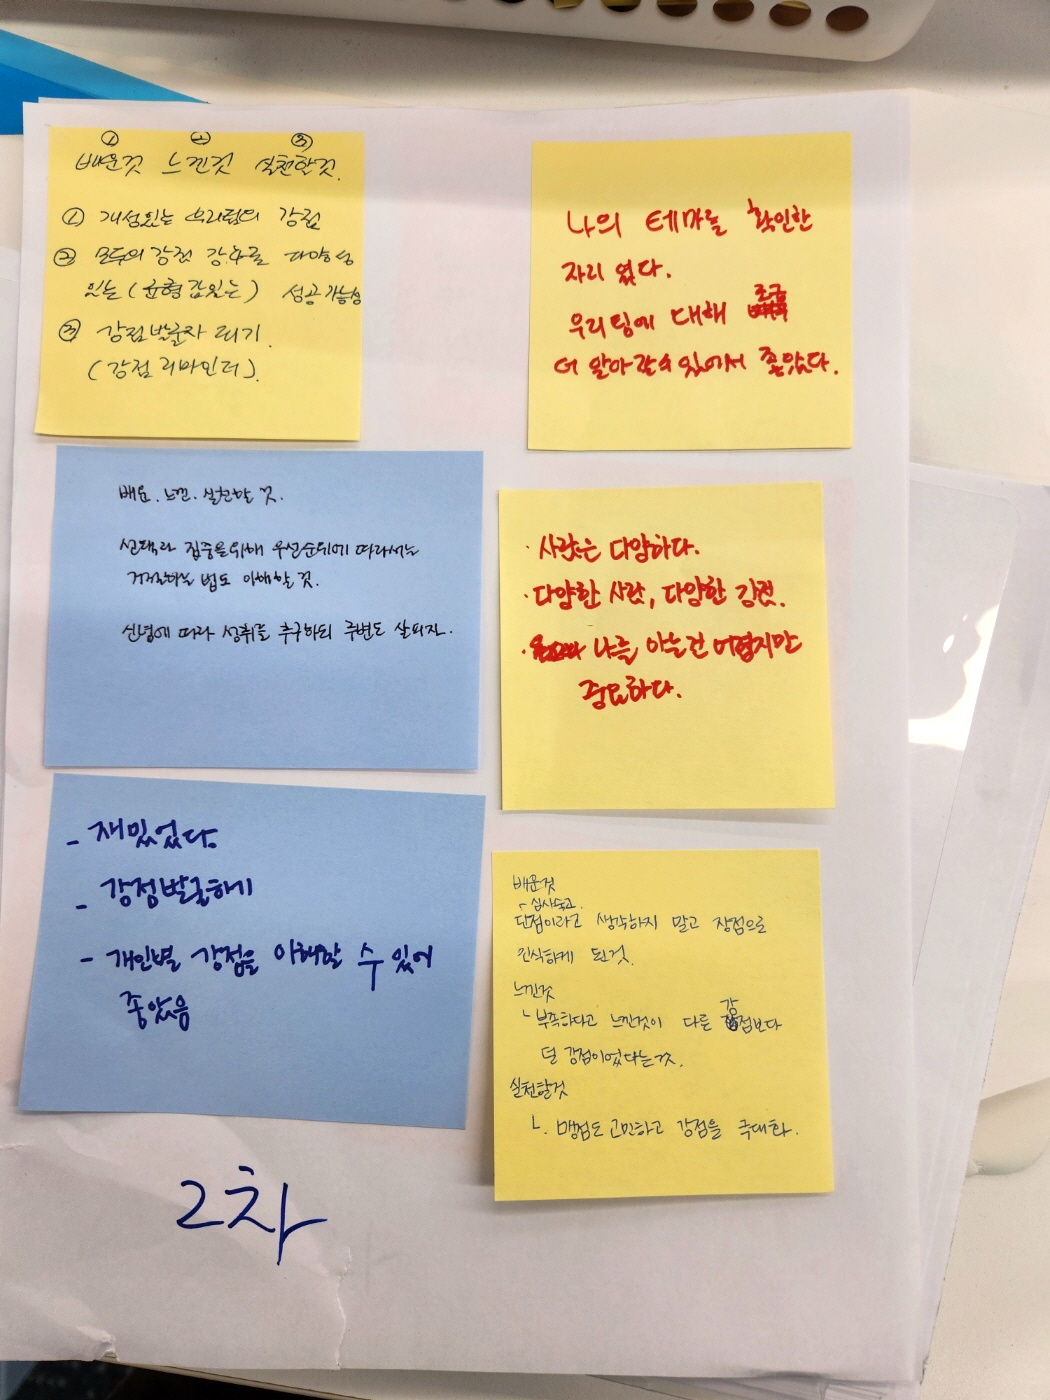 ① ② ③
배운것 느낀것 실천할것.
① 개성있는 우리팀의 강점
② 모두의 강점 강수를 다양성
있는 (균형감있는) 성공가능성
③ 강점발굴자 되기.
(강점 리마인더).
나의 테마를 확인한
자리 였다.
우리팀에 대해 조금
더 알아갈수있어서 좋았다.
배운. 느낀. 실천할 것.
선택과 집중을위해 우선순위에 따라서는
거절하는 법도 이해할 것.
신념에 따라 성취를 추구하되 주변도 살피자.
· 사람은 다양하다.
· 다양한 사람, 다양한 강점.
· 나를 아는건 어렵지만
중요하다.
- 재밌었다
- 강점발굴하기
- 개인별 강점을 이해할 수 있어
좋았음
배운것
- 심사숙고.
단점이라고 생각하지 말고 장점으로
인식하게 된것.
느낀것
ㄴ부족하다고 느낀것이 다른 강점보다
덜 강점이었다는것.
실천할것
ㄴ. 맹점도 고민하고 강점을 극대화.
2차